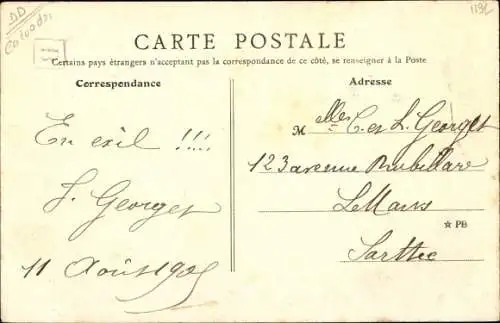 DD
Calvados
1192
CARTE POSTALE
Certains pays étrangers n'acceptant pas la correspondance de ce côté, se renseigner à la Poste
Correspondance
En exil !!!!
J. Georget
11 Août 1905
Adresse
Melles C. et L. Georget
123 avenue Rubillard
Le Mans
☆ PB
Sarthe